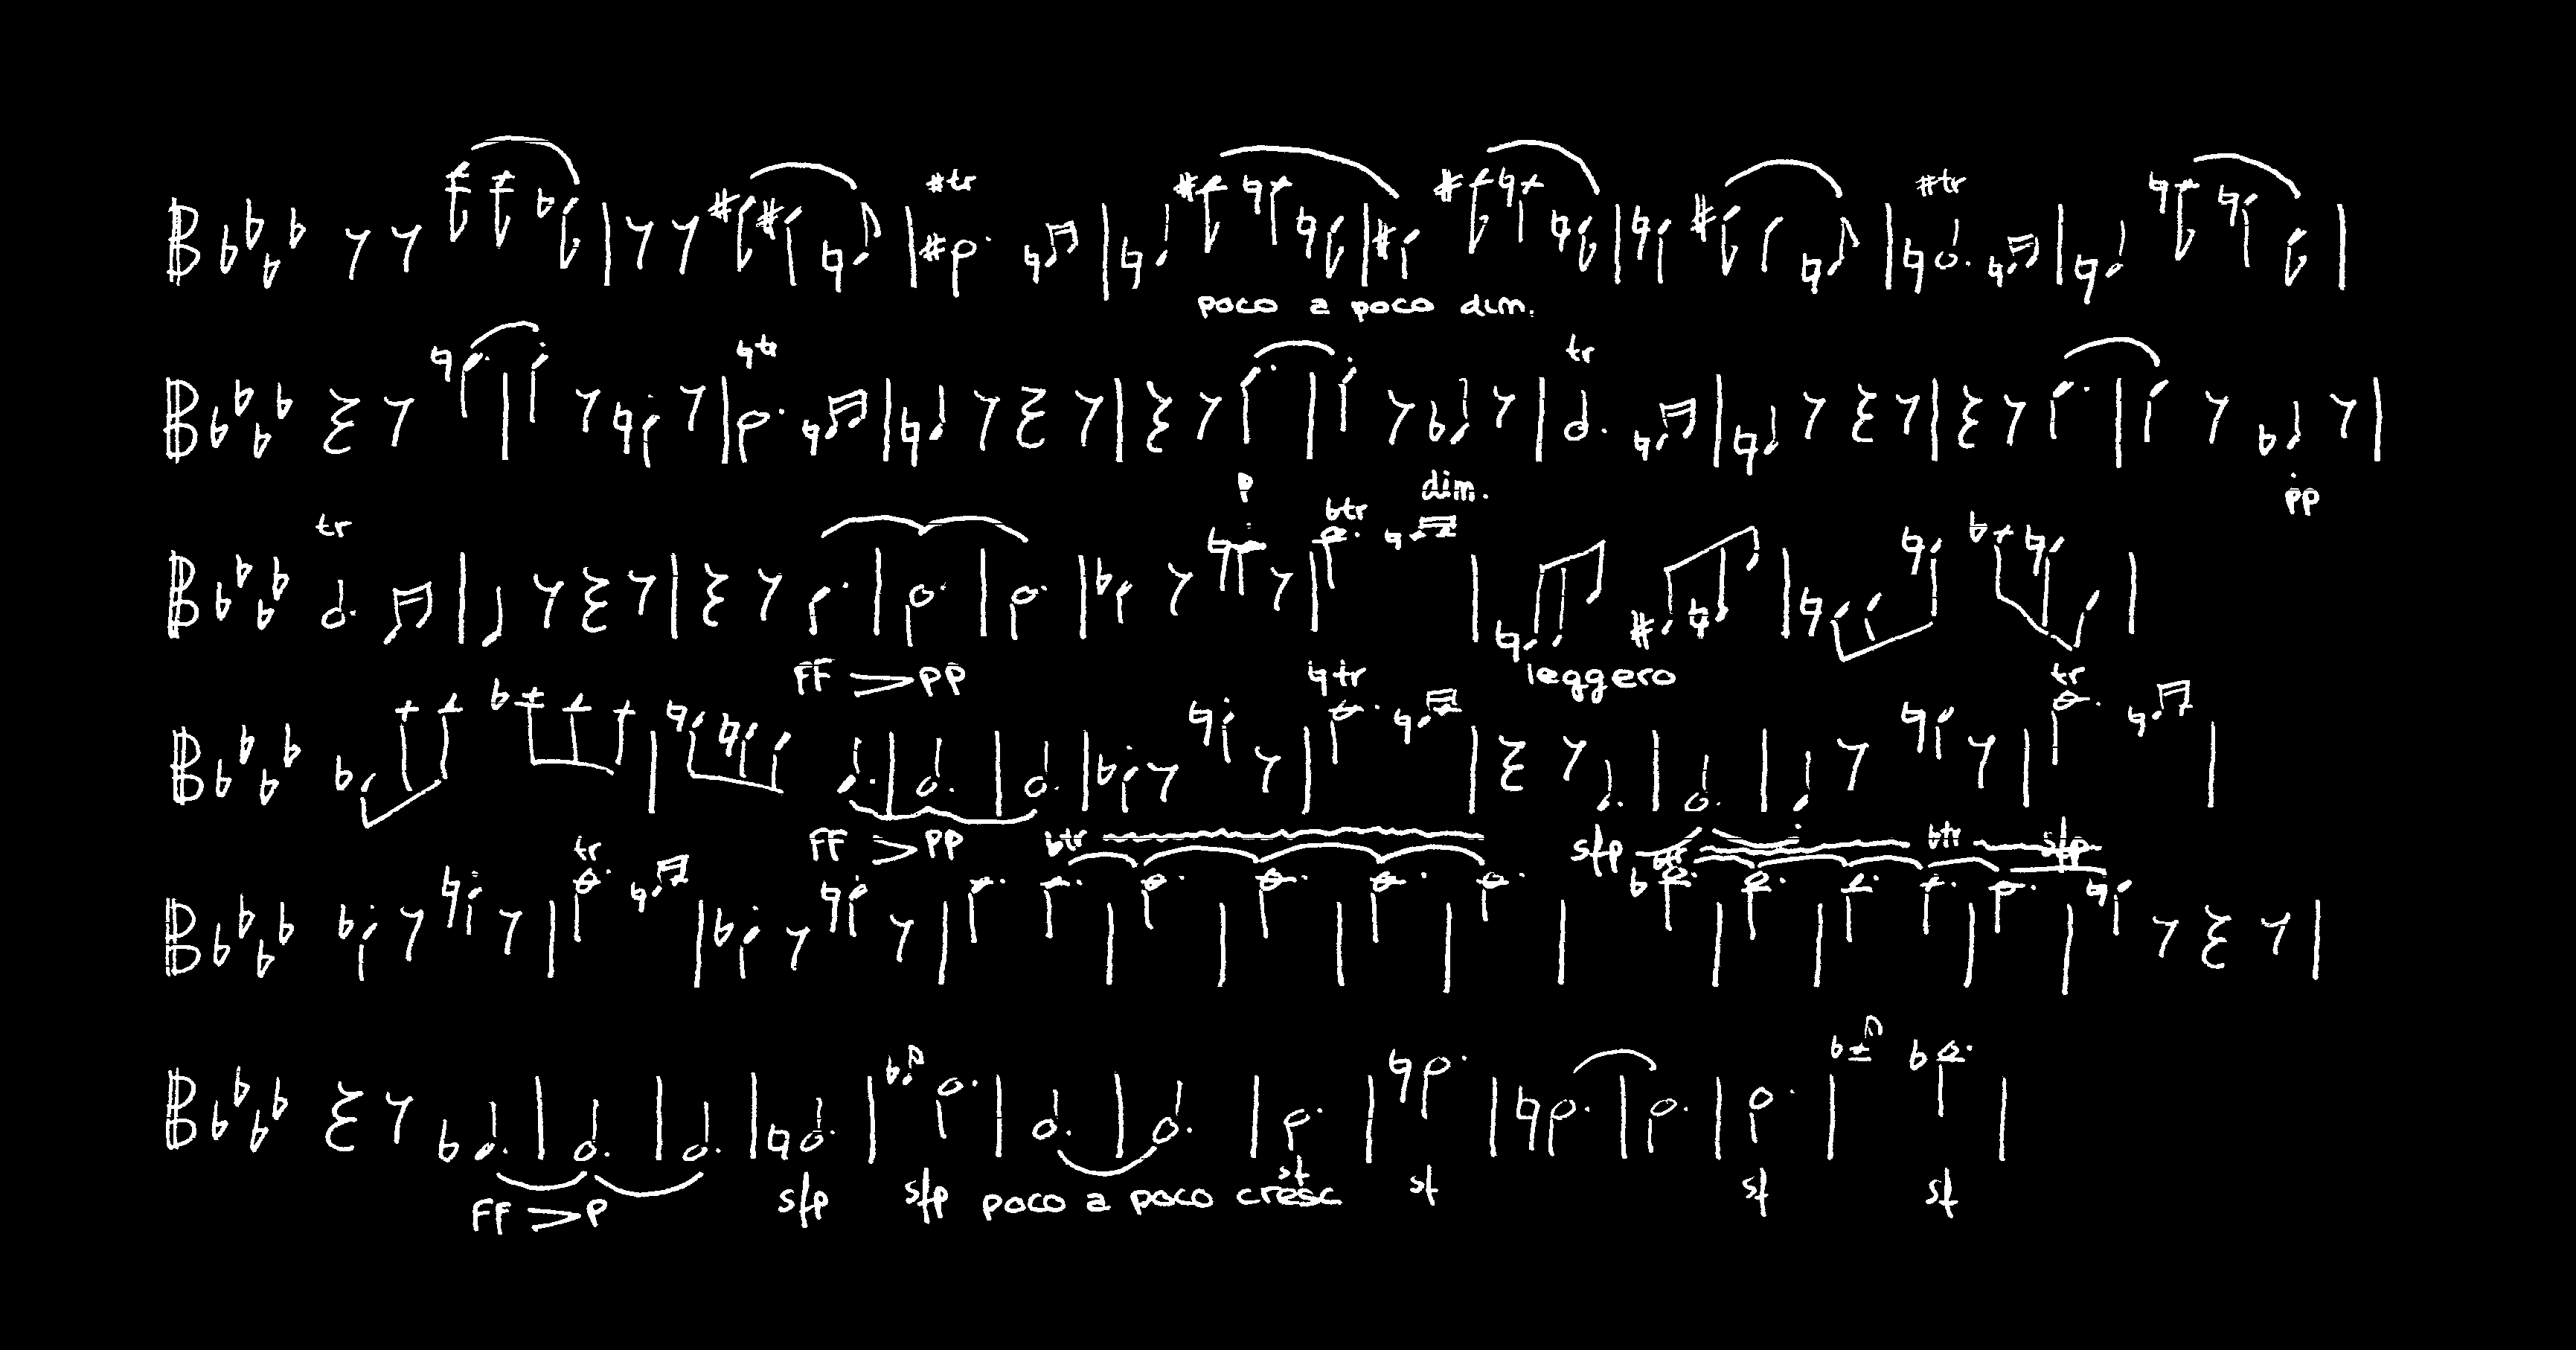 tr tr
poco a poco dim.
tr tr
p dim. pp
tr tr
FF > PP leggero
tr tr
FF > PP sfp sfp
tr tr tr tr
FF > P sfp sfp poco a poco cresc sf sf sf sf